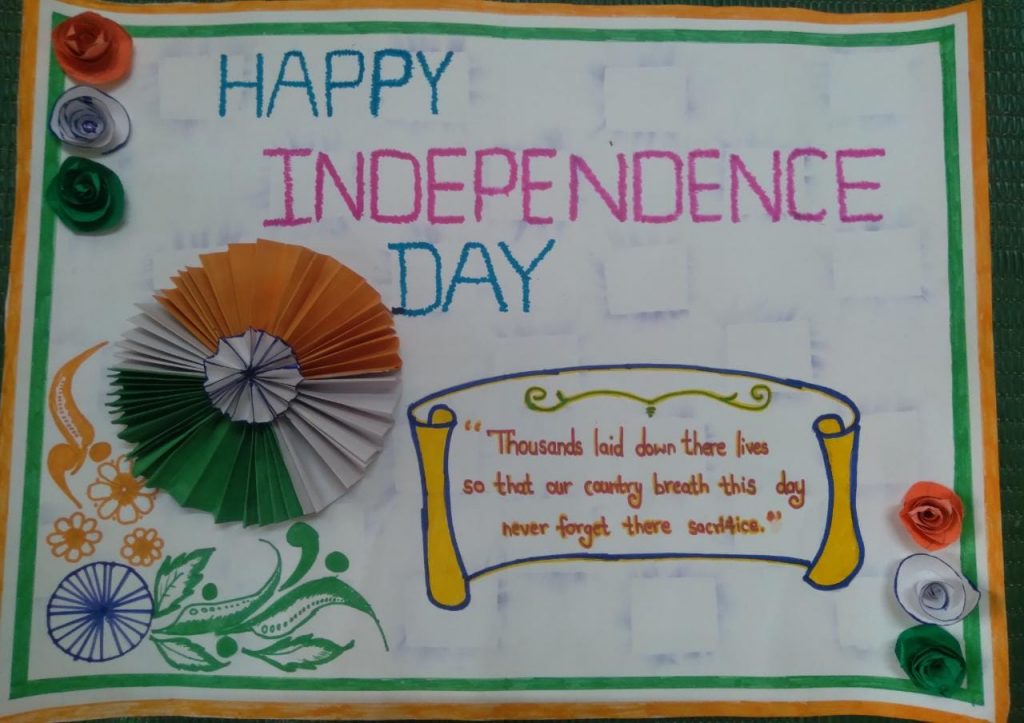 HAPPY
INDEPENDENCE
DAY
"Thousands laid down there lives
so that our country breath this day
never forget there sacrifice."